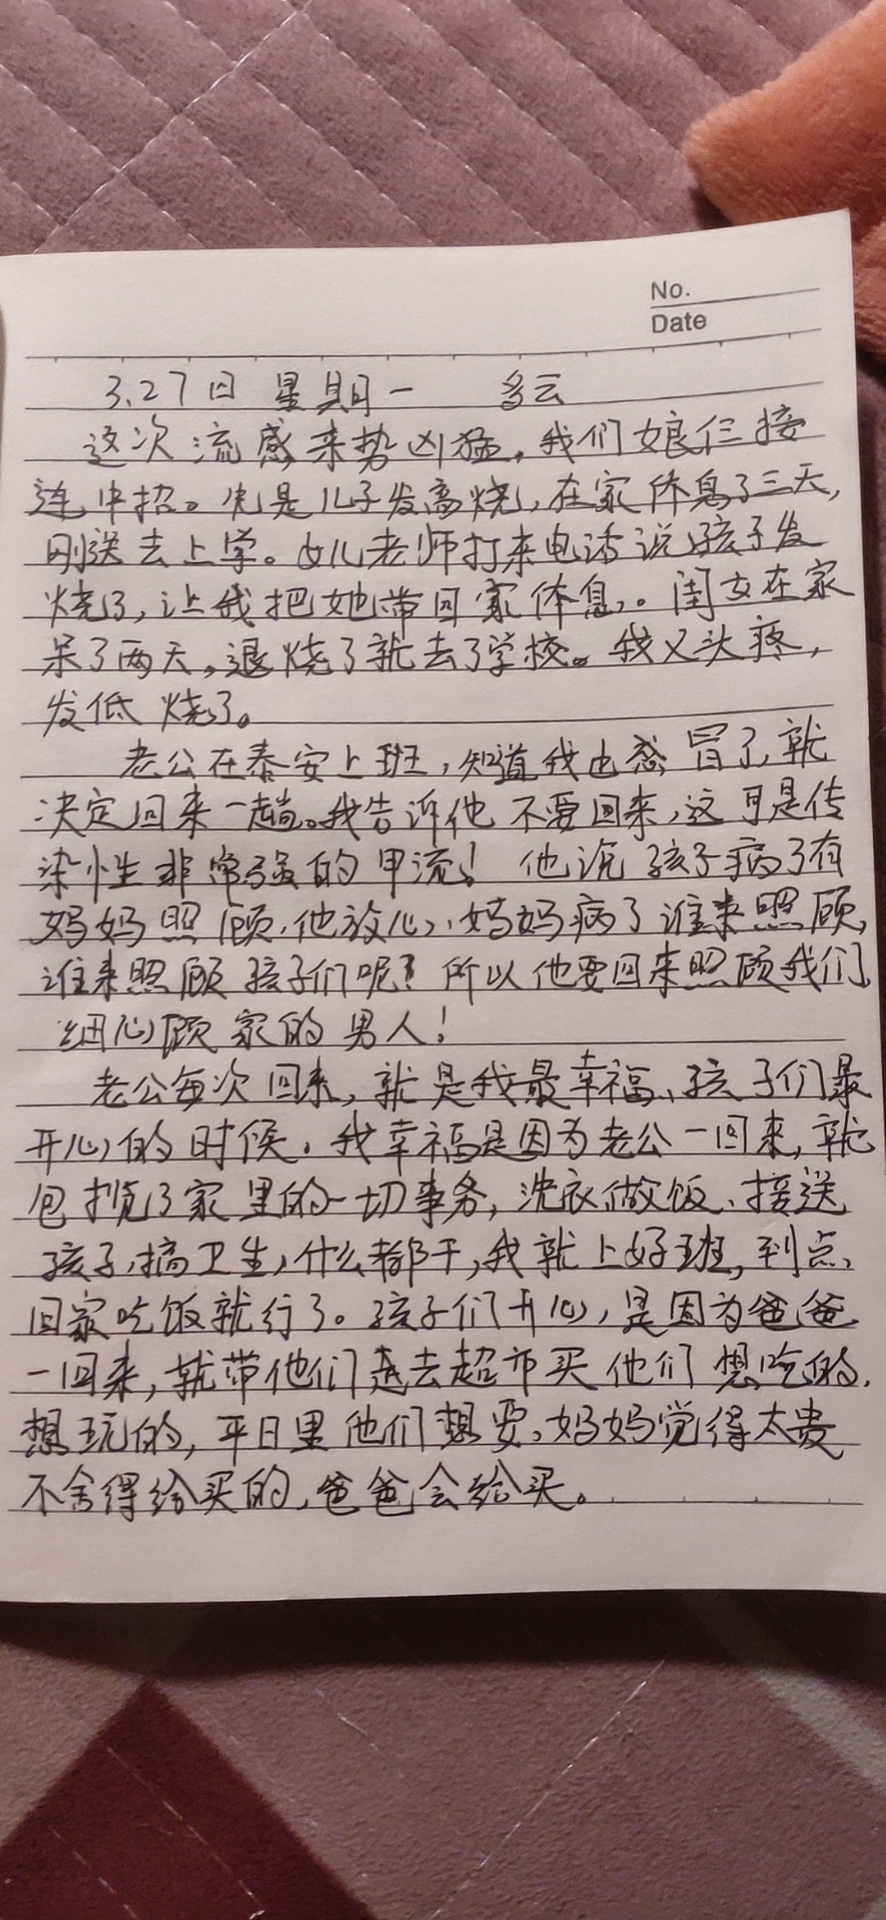 No.
Date
3.27日 星期一 多云
这次流感来势凶猛，我们娘仨接
连中招。先是儿子发高烧，在家休息了三天，
刚送去上学。女儿老师打来电话说孩子发
烧了，让我把她带回家休息。闺女在家
呆了两天，退烧了就去了学校。我又头疼，
发低烧了。
老公在泰安上班，知道我也感冒了，就
决定回来一趟。我告诉他不要回来，这可是传
染性非常强的甲流！他说孩子病了有
妈妈照顾，他放心，妈妈病了谁来照顾，
谁来照顾孩子们呢？所以他要回来照顾我们
细心顾家的男人！
老公每次回来，就是我最幸福、孩子们最
开心的时候。我幸福是因为老公一回来，就
包揽了家里的一切事务，洗衣做饭、接送
孩子，搞卫生，什么都干，我就上好班，到点
回家吃饭就行了。孩子们开心，是因为爸爸
一回来，就带他们逛去超市买他们想吃的，
想玩的，平日里他们想要，妈妈觉得太贵
不舍得给买的，爸爸会给买。